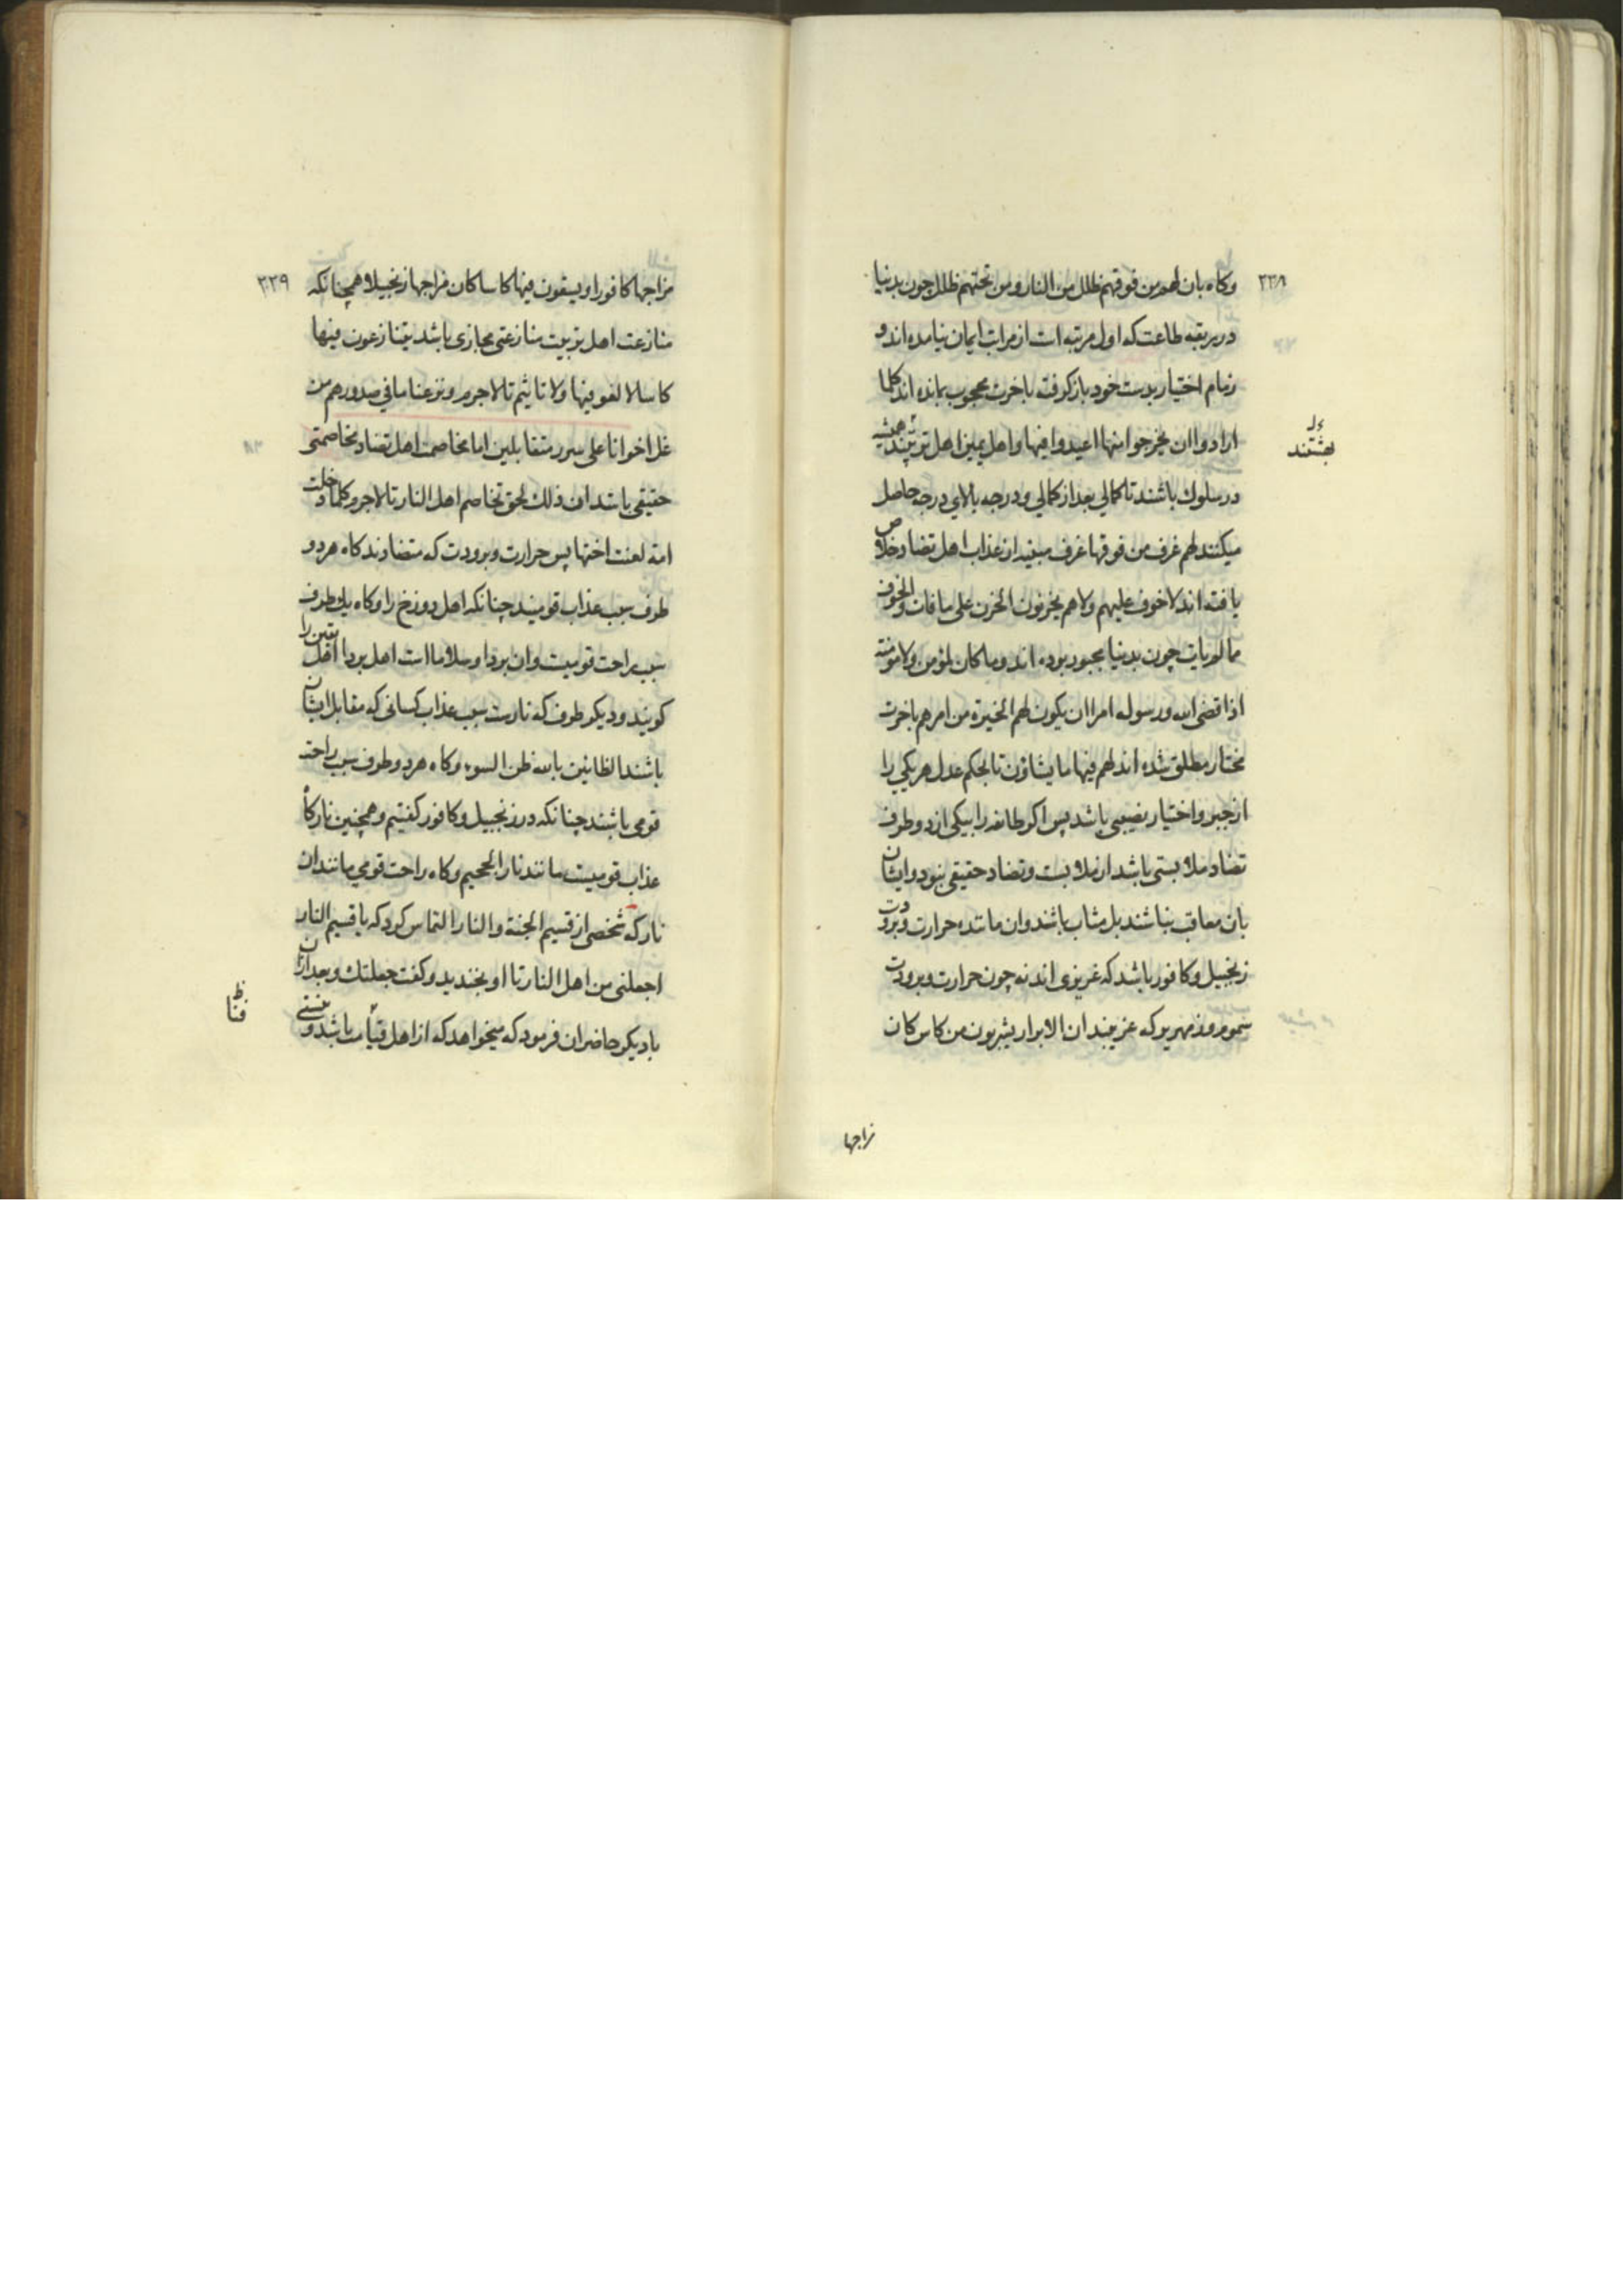 ٢٣٨
وكاه بان لهم من فوقهم ظلل من النار ومن تحتهم ظلل چون بدنيا
در ربقه طاعت كه اول مرتبه است از مراتب ايمان نيامده اند و
زمام اختيار بدست خود باز كرفته باخرت محجوب بمانده اند كلما
ارادوا ان يخرجوا منها اعيدوا فيها واهل يمين اهل ترتبند هميشه
بهشتند
در سلوك باشند تا كمالي بعد از كمالي ودرجه بالاي درجه حاصل
ميكنند لهم غرف من فوقها غرف مبنيه از عذاب اهل تضاد خلاص
يافته اند لا خوف عليهم ولا هم يحزنون الحزن على ما فات والخوف
مما لم يات چون بدنيا مجبور بوده اند وما كان لمؤمن ولا مؤمنة
اذا قضى الله ورسوله امرا ان يكون لهم الخيرة من امرهم باخرت
مختار مطلق شده اند لهم فيها ما يشاؤن تا بحكم عدل هر يكي را
از جبر واختيار نصيبى باشد پس اكر طائفه را بيكى از دو طرف
تضاد ملابستى باشد از ملابست وتضاد حقيقى نبود وايشان
بان معاقب نباشند بل مثاب باشند وان مانند حرارت وبرودت
زنجبيل وكافور باشد كه غريزى اند نه چون حرارت وبرودت
سموم وزمهرير كه غريبند ان الابرار يشربون من كاس كان
مزاجها
٢٣٩
مزاجها كافورا ويسقون فيها كاسا كان مزاجها زنجبيلا وهمچنانكه
منازعت اهل ترتيب منازعتى مجازى باشد يتنازعون فيها
كاسا لا لغو فيها ولا تاثيم تا لاجرم ونزعنا ما في صدورهم من
غل اخوانا على سرر متقابلين اما مخاصمت اهل تضاد مخاصمتى
حقيقى باشد ان ذلك لحق تخاصم اهل النار تا لاجرم كلما دخلت
امة لعنت اختها پس حرارت وبرودت كه متضادند كاه هر دو
طرف سبب عذاب قوميند چنانكه اهل دوزخ را وكاه يك طرف
سبب راحت قوميست وان بردا وسلاما است اهل بردا اهل يقين را
كويند وديكر طرف كه نارست سبب عذاب كسانى كه مقابل ايشان
باشند الظانين بالله ظن السوء وكاه هر دو طرف سبب راحت
قومى باشند چنانكه در زنجبيل وكافور كفتيم وهمچنين نار كاه
عذاب قوميست مانند نار الجحيم وكاه راحت قومي مانند ان
نار كه شخصى از قسيم الجنة والنار التماس كرد كه يا قسيم النار
اجعلنى من اهل النار تا او بخنديد وكفت جعلتك وبعد ازان
با ديكر حاضران فرمود كه ميخواهد كه از اهل قيامت باشد و